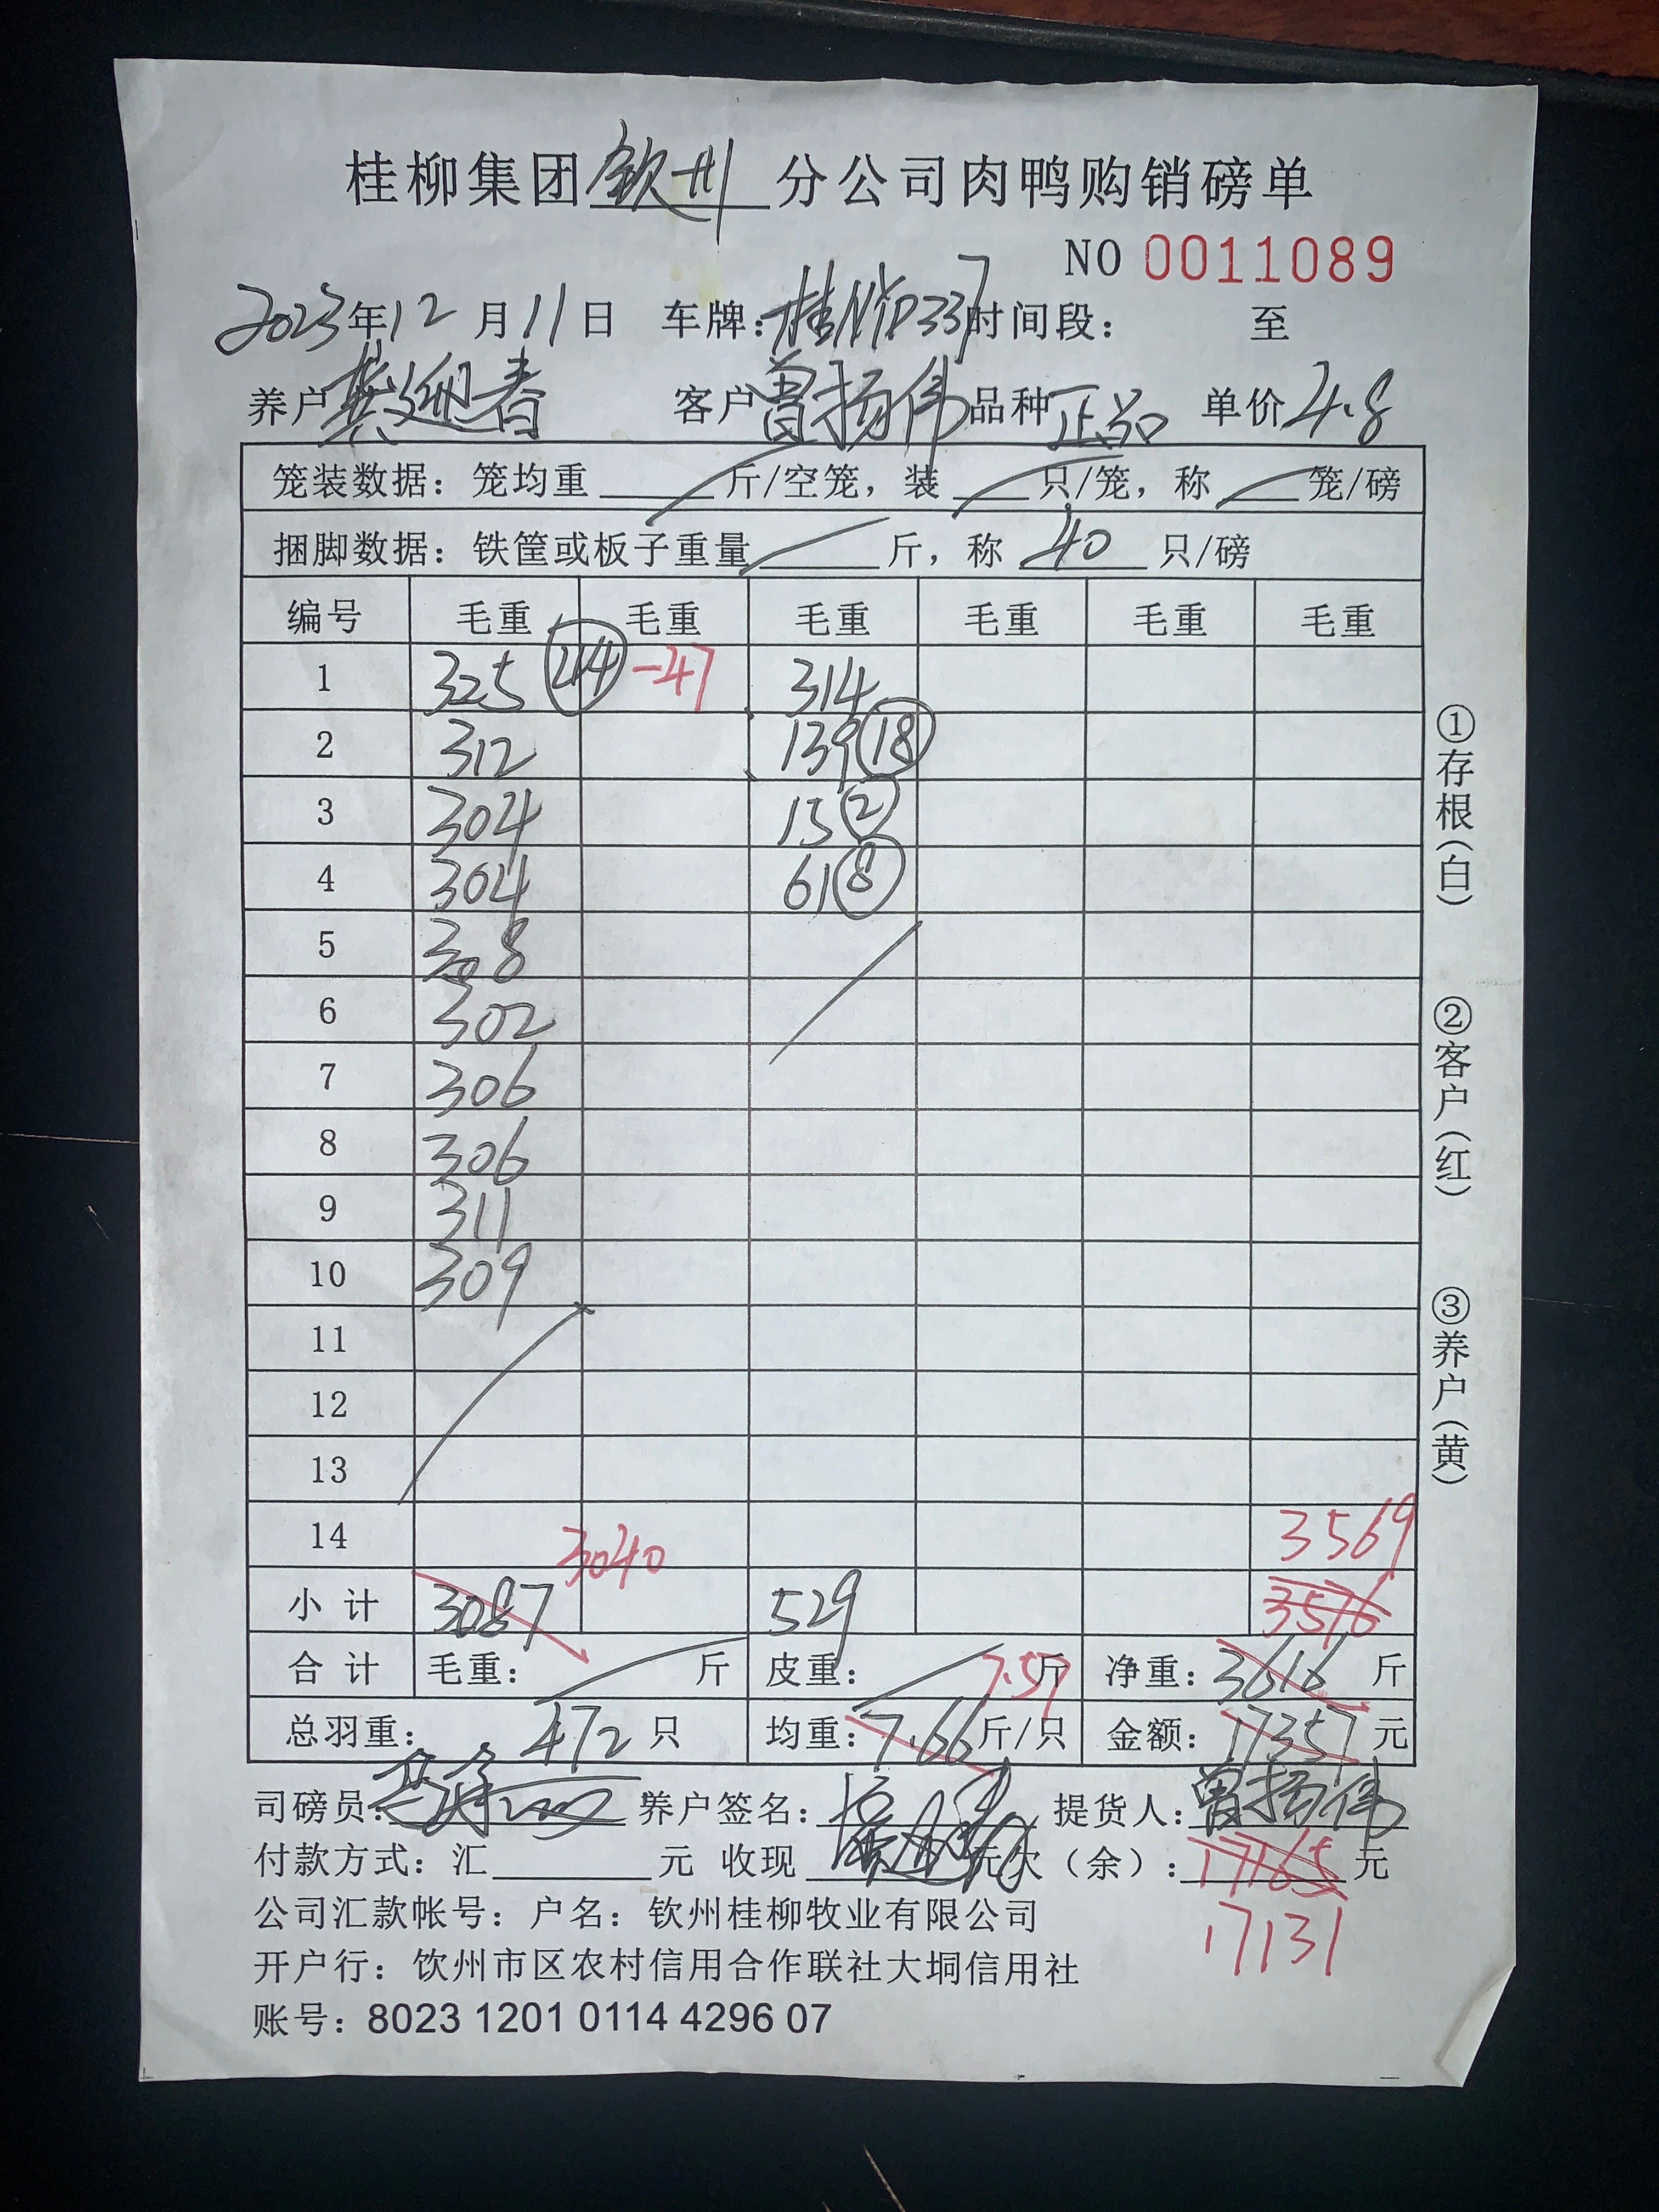 桂柳集团钦州分公司肉鸭购销磅单
NO 0011089
2023年12月11日 车牌: 桂 D337 时间段: 至
养户 龚迎春 客户 曾扬伟 品种 正品 单价 4.8
笼装数据: 笼均重 斤/空笼, 装 只/笼, 称 笼/磅
捆脚数据: 铁筐或板子重量 斤, 称 40 只/磅
编号 毛重 毛重 毛重 毛重 毛重 毛重
1 325 44 -47 314
2 312 139 18
3 304 15 2
4 304 61 8
5 308
6 302
7 306
8 306
9 311
10 309
11
12
13
14 3040 3569
小计 3087 529 3576
合计 毛重: 斤 皮重: 斤 7.57 净重: 3616 斤
总羽重: 472 只 均重: 7.66 斤/只 金额: 17357 元
司磅员: 养户签名: 提货人: 曾扬伟
付款方式: 汇 元 收现 元欠(余): 17165 元
公司汇款帐号: 户名: 钦州桂柳牧业有限公司
17131
开户行: 钦州市区农村信用合作联社大垌信用社
账号: 8023 1201 0114 4296 07
①存根(白)
②客户(红)
③养户(黄)